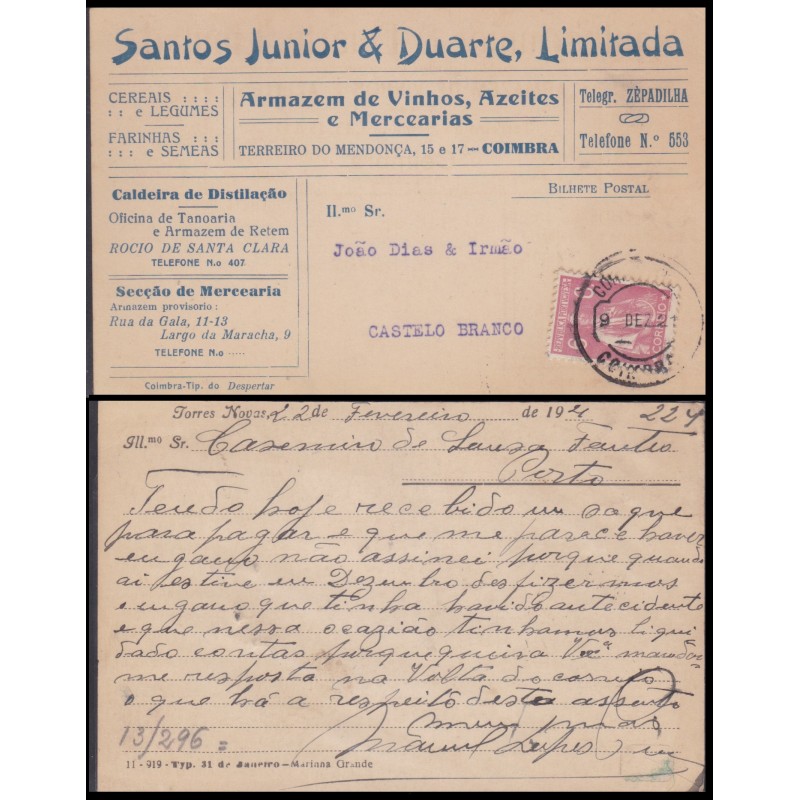 Santos Junior & Duarte, Limitada
CEREAIS : : : :
: : e LEGUMES
FARINHAS : :
: : : e SEMEAS
Armazem de Vinhos, Azeites
e Mercearias
TERREIRO DO MENDONÇA, 15 e 17 — COIMBRA
Telegr. ZÈPADILHA
Telefone N.º 553
Caldeira de Distilação
Oficina de Tanoaria
e Armazem de Retem
ROCIO DE SANTA CLARA
TELEFONE N.o 407
Secção de Mercearia
Armazem provisorio :
Rua da Gala, 11-13
Largo da Maracha, 9
TELEFONE N.o .....
Coimbra-Tip. do Despertar
BILHETE POSTAL
Il.mo Sr.
João Dias & Irmão
CASTELO BRANCO
CORREIO
9 DEZ 2
COIMBRA
Torres Novas, 22 de Fevereiro de 1921 224
Ill.mo Sr. Casemiro de Sousa
Porto
Tendo hoje recebido um saque
para pagar e que me parece haver
engano não assinei porque quando
ai estive em Dezembro desfizemos
engano que tinha havido antecidente
e que nessa ocazião tinhamos liqui
dado contas porque queira V mandar
me resposta na Volta do correio
o que há a respeito deste assunto
Manuel Lopes
13/296 =
11 - 919 - Typ. 31 de Janeiro — Marinha Grande